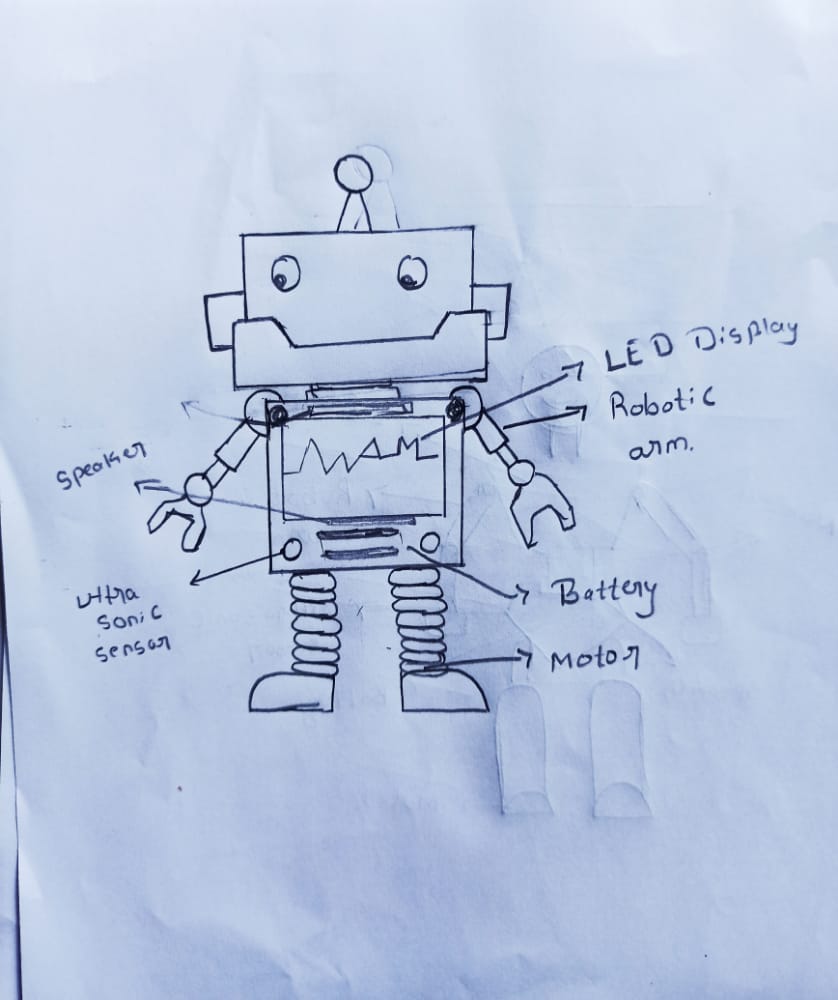 LED Display
Robotic
arm.
Speaker
ultra
sonic
sensor
Battery
Motor